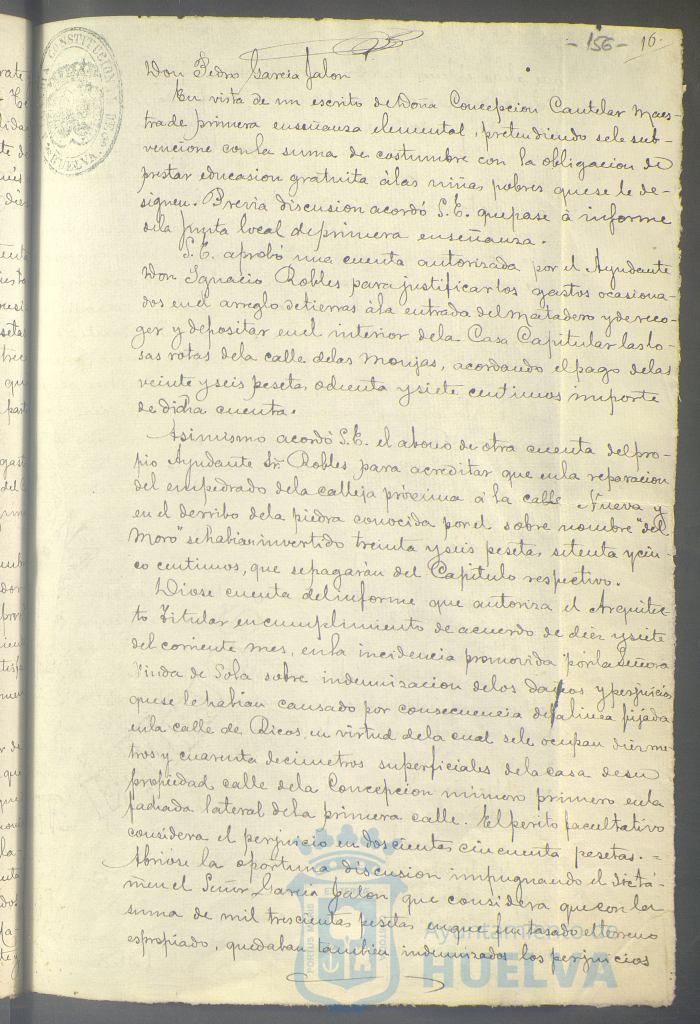 - 156 - 16.
CONSTITUCION
HUELVA
Don Pedro Garcia Jalon
En vista de un escrito de Doña Concepcion Cantelar Maes-
tra de primera enseñanza elemental, pretendiendo se le sub-
vencione con la suma de costumbre con la obligacion de
prestar educasion gratuita á las niñas pobres que se le de-
signen. Previa discusion acordó S.E. que pase á informe
de la Junta local de primera enseñanza.
S.E. aprobó una cuenta autorizada por el Ayudante
Don Ignacio Robles para justificar los gastos ocasiona-
dos en el arreglo de tierras á la entrada del Matadero y de reco-
ger y depositar en el interior de la Casa Capitular las lo-
sas rotas de la calle de las Monjas, acordando el pago de las
veinte y seis pesetas ochenta y siete centimos importe
de dicha cuenta.
Asimismo acordó S.E. el abono de otra cuenta del pro-
pio Ayudante Sr. Robles para acreditar que en la reparacion
del empedrado de la calleja próxima á la calle Nueva y
en el derribo de la piedra conocida por el sobre nombre "del
Moro" se habian invertido treinta y seis pesetas setenta y cin-
co centimos, que se pagarán del Capitulo respectivo.
Diose cuenta del informe que autoriza el Arquitec-
to Titular en cumplimiento de acuerdo de diez y siete
del corriente mes, en la incidencia promovida por la Señora
Viuda de Sola sobre indemnizacion de los daños y perjuicios
que se le habian causado por consecuencia de la linea fijada
en la calle de Ricos, en virtud de la cual se le ocupan diez me-
tros y cuarenta decimetros superficiales de la casa de su
propiedad calle de la Concepcion número primero en la
fachada lateral de la primera calle. El perito facultativo
considera el perjuicio en doscientas cincuenta pesetas. =
Abriose la oportuna discusion impugnando el dictá-
men el Señor Garcia Jalon que considera que con la
suma de mil trescientas pesetas en que fue tasado el terreno
espropiado, quedaban tambien indemnizados los perjuicios
PORTUS MARIS
Ayuntamiento de
HUELVA